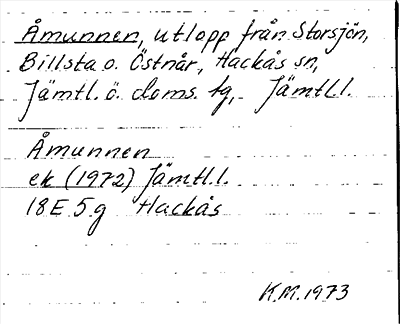 Åmunnen, utlopp från Storsjön,
Billsta o. Östnår, Hackås sn,
Jämtl. ö. doms. tg, Jämtl.l.
Åmunnen
ek (1972) Jämtl.l.
18E 5g Hackås
K.M. 1973